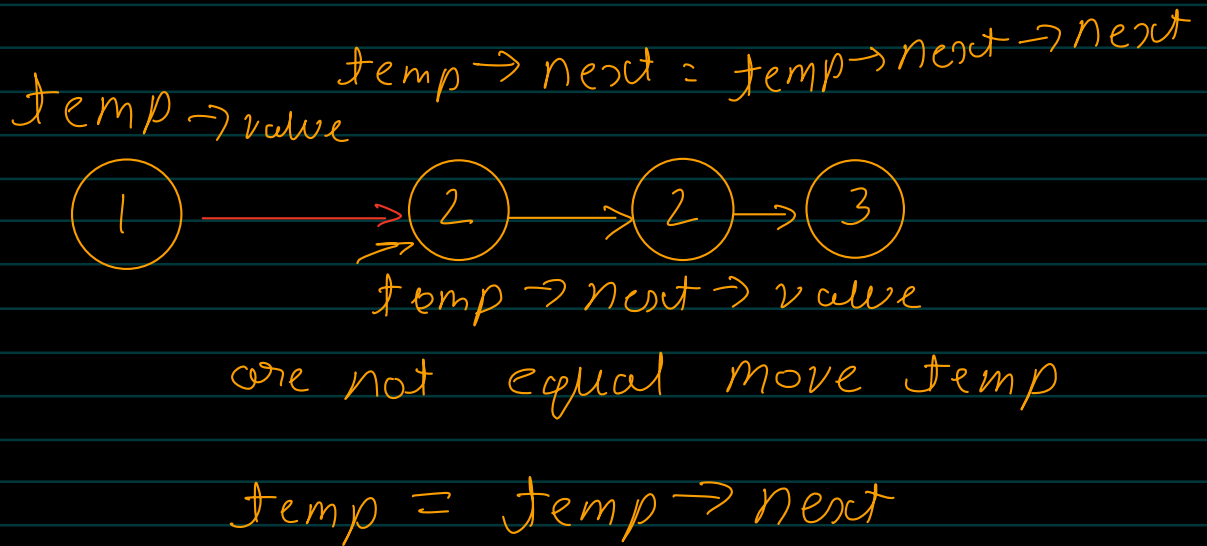 temp → next = temp → next → next
temp → value
1 → 2 → 2 → 3
temp → next → value
are not equal move temp
temp = temp → next